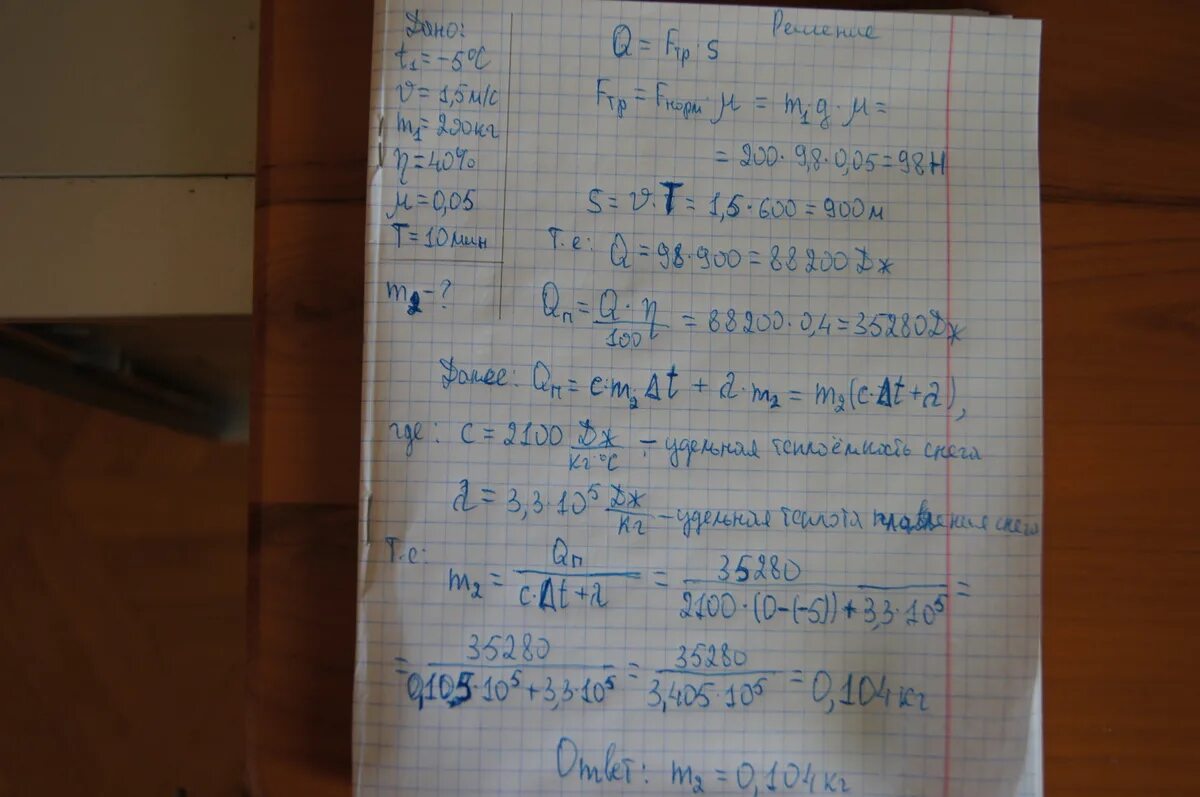 Дано:
t₁ = -5°C
υ = 1,5 м/с
m₁ = 200 кг
η = 40%
μ = 0,05
T = 10 мин
m₂ - ?
Решение
Q = Fтр · S
Fтр = Fнорм · μ = m₁ g · μ =
= 200 · 9,8 · 0,05 = 98 Н
S = υ · T = 1,5 · 600 = 900 м
Т.е: Q = 98 · 900 = 88200 Дж
Qп = Q · η / 100 = 88200 · 0,4 = 35280 Дж
Далее: Qп = c · m₂ Δt + λ · m₂ = m₂ (c · Δt + λ),
где: c = 2100 Дж / кг · °C - удельная теплоёмкость снега
λ = 3,3 · 10⁵ Дж / кг - удельная теплота плавления снега
Т.е: m₂ = Qп / c · Δt + λ = 35280 / 2100 · (0 - (-5)) + 3,3 · 10⁵ =
= 35280 / 0,105 · 10⁵ + 3,3 · 10⁵ = 35280 / 3,405 · 10⁵ = 0,104 кг
Ответ: m₂ = 0,104 кг